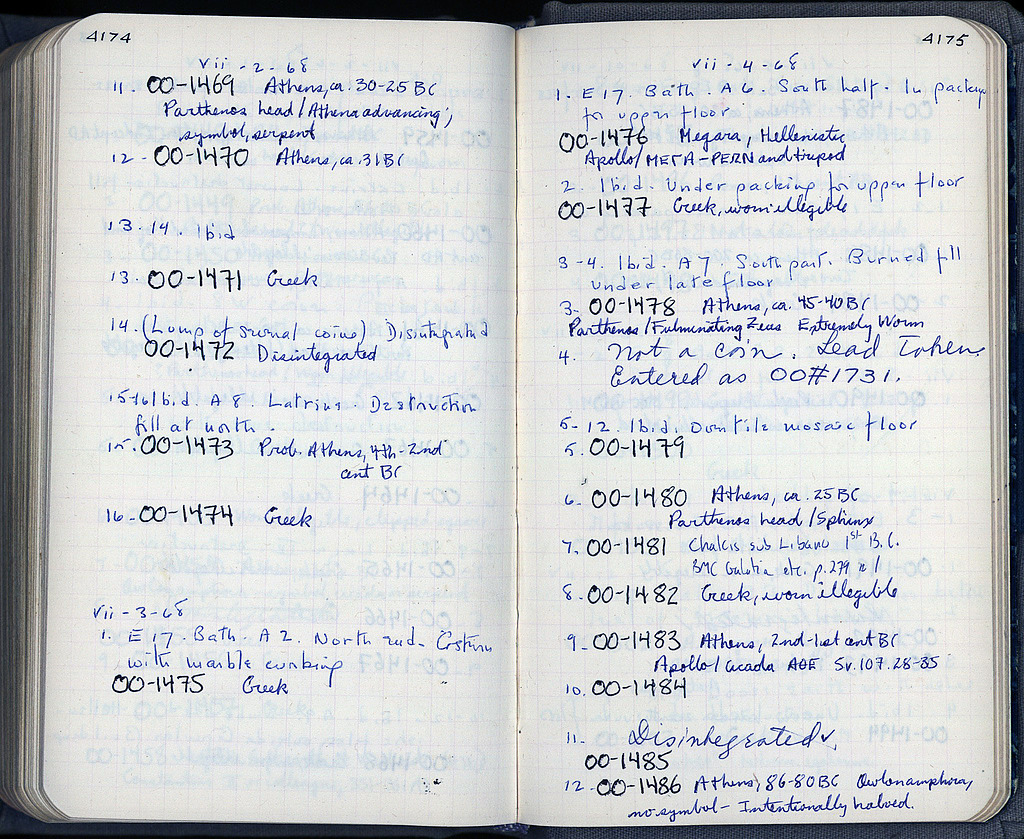 4174
vii - 2 - 68
11. 00-1469 Athens, ca. 30-25 BC
Parthenos head/Athena advancing;
symbol, serpent
12 - 00-1470 Athens, ca. 31 BC
13. 14. Ibid
13. 00-1471 Greek
14. (Lump of several coins) Disintegrated
00-1472 Disintegrated
15-16 Ibid. A 8. Latrine. Destruction
fill at north.
15. 00-1473 Prob. Athens, 4th-2nd
cent BC
16. 00-1474 Greek
vii - 3 - 68
1. E 17. Bath. A 2. North end. Cistern
with marble curbing
00-1475 Greek
4175
vii - 4 - 68
1. E 17. Bath. A 6. South half. In packing
for upper floor
00-1476 Megara, Hellenistic
Apollo/ΜΕΓΑ-ΡΕΡΝ and tripod
2. Ibid. Under packing for upper floor
00-1477 Greek, worn illegible
3-4. Ibid. A 7. South part. Burned fill
under late floor
3. 00-1478 Athens, ca. 45-40 BC
Parthenos/Fulminating Zeus Extremely Worn
4. Not a coin. Lead Token
Entered as 00#1731.
5-12. Ibid. Over tile mosaic floor
5. 00-1479
6. 00-1480 Athens, ca. 25 BC
Parthenos head/Sphinx
7. 00-1481 Chalcis sub Libano 1st B.C.
BMC Galatia etc. p. 279 1
8. 00-1482 Greek, worn illegible
9. 00-1483 Athens, 2nd-1st cent BC
Apollo/Cicada ΑΘΕ Sv. 107.28-35
10. 00-1484
11. Disintegrated
00-1485
12. 00-1486 Athens, 86-80 BC Owl on amphora,
no symbol - Intentionally halved.